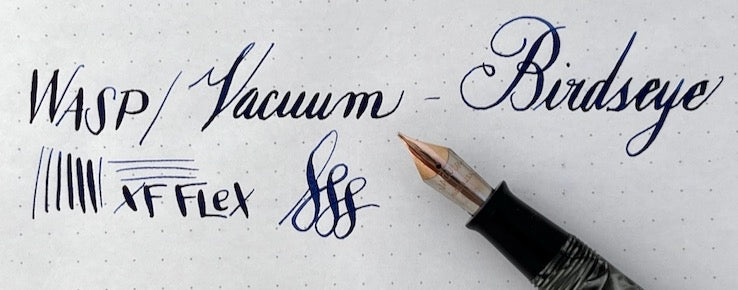 WASP / Vacuum - Birdseye
XF FLeX